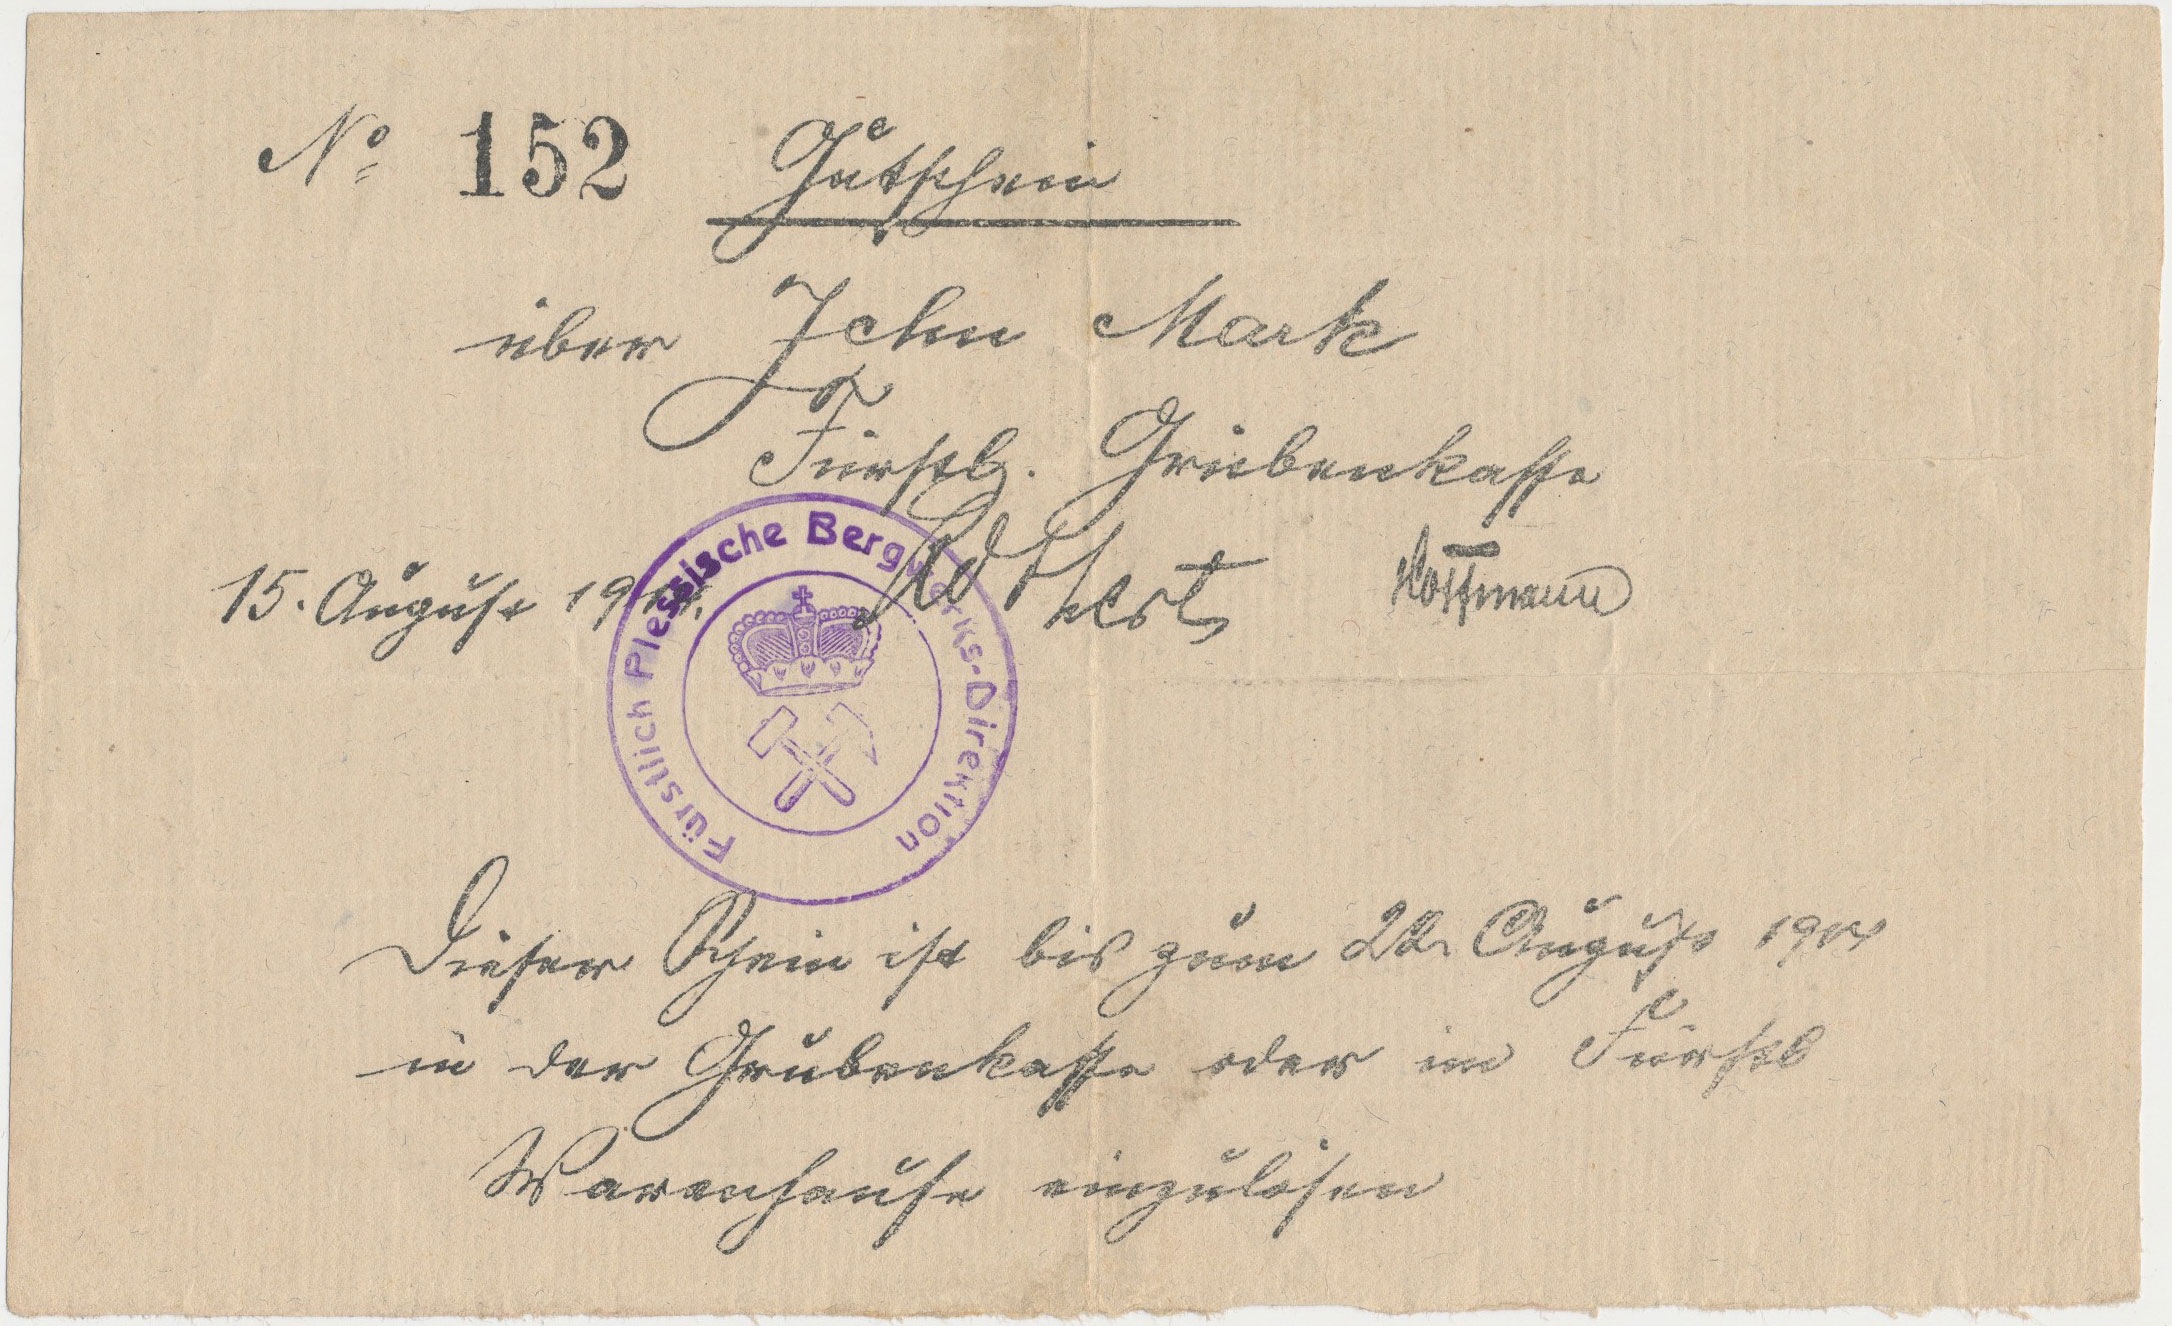 No 152 Gutschein
über Zehn Mark
Fürstl. Grubenkasse
15. August 1914. Hoffmann
Fürstlich Plessische Bergwerks-Direktion
Dieser Schein ist bis zum 22. August 1914
in der Grubenkasse oder im Fürstl
Warenhause einzulösen